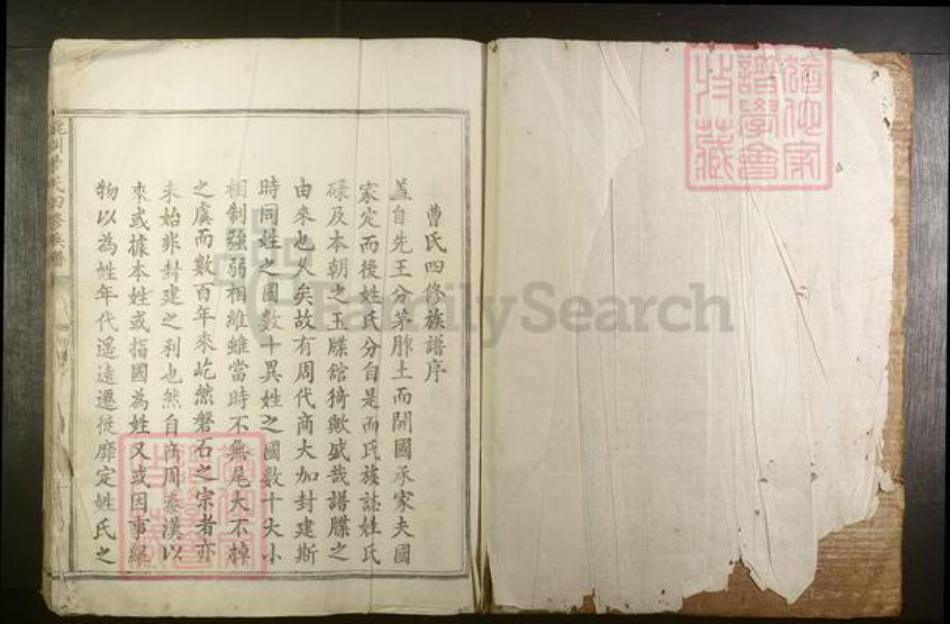 曹氏四修族譜序
蓋自先王分茅胙土而開國承家夫國
家定而後姓氏分自是而氏族誌姓氏
碌及本朝之玉牒館猗歟盛哉譜牒之
由來也久矣故有周代商大加封建斯
時同姓之國數十異姓之國數十大小
相制強弱相維雖當時不無尾大不掉
之虞而數百年來屹然磐石之宗者亦
未始非封建之利也然自商周秦漢以
來或據本姓或指國為姓又或因事緣
物以為姓年代遙遠遷徙靡定姓氏之
氏四修族譜
譜學會
收藏
FamilySearch